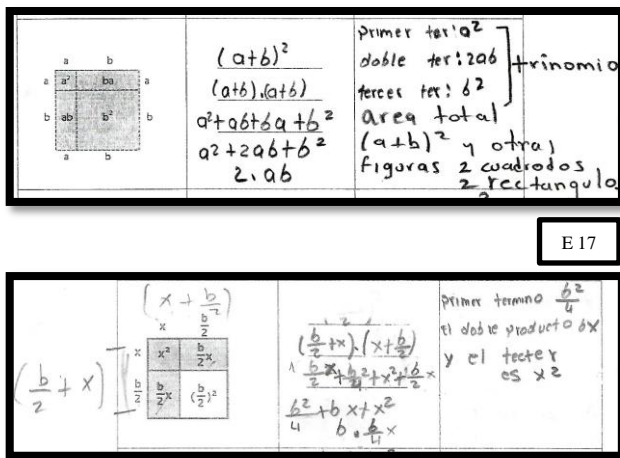 a b
a a² ba a
b ab b² b
a b
(a+b)²
(a+b).(a+b)
a²+ab+ba+b²
a²+2ab+b²
2.ab
primer ter: a²
doble ter: 2ab
tercer ter: b²
trinomio
area total
(a+b)² y otras
figuras 2 cuadrados
2 rectangulo
E 17
(x + b/2)
x b/2
(b/2 + x)
x x² b/2x
b/2 b/2x (b/2)²
(b/2+x).(x+b/2)
b²/4 + bx + x²
primer termino b²/4
el doble producto bx
y el tecter
es x²